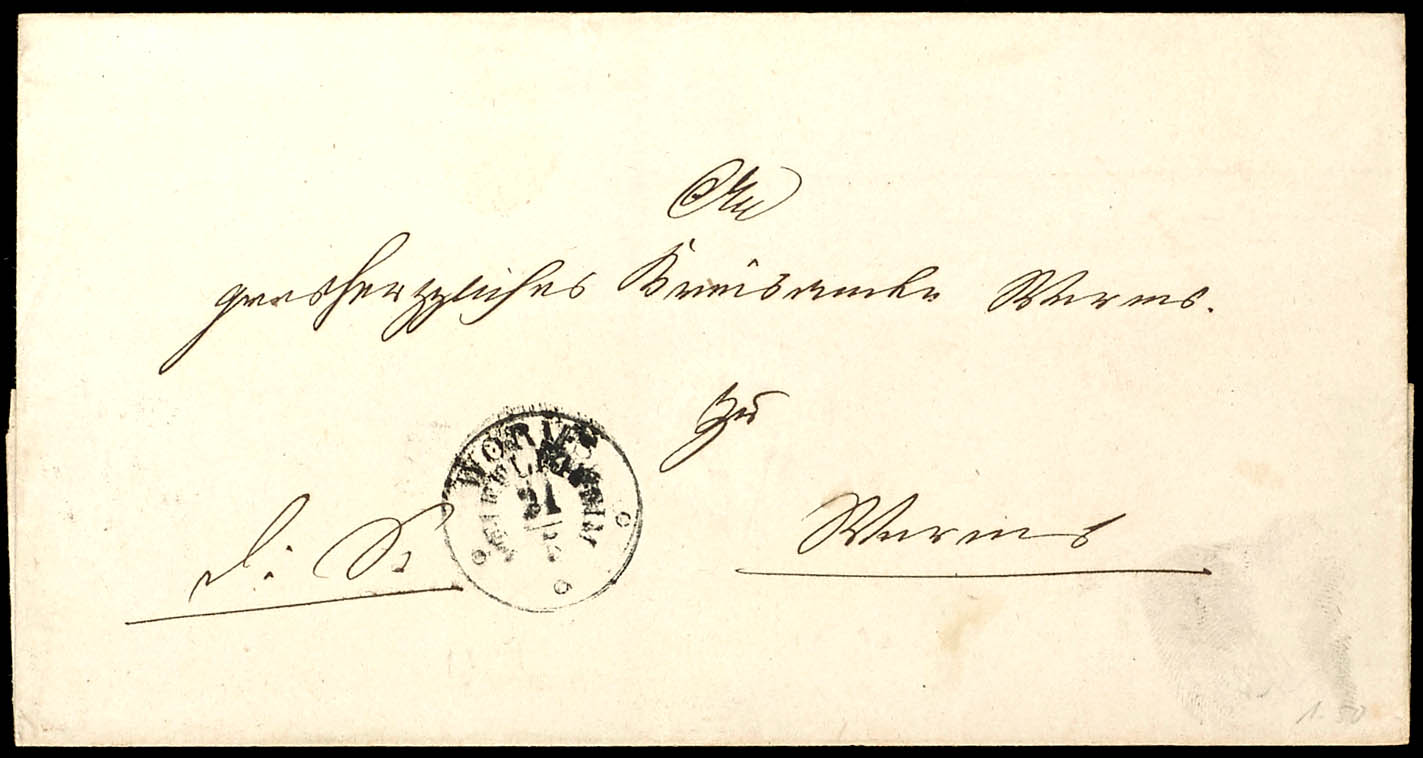 An
grosherzogliches Kreisamte Worms.
zu
WORMS
21
d: S.
Worms
1.50